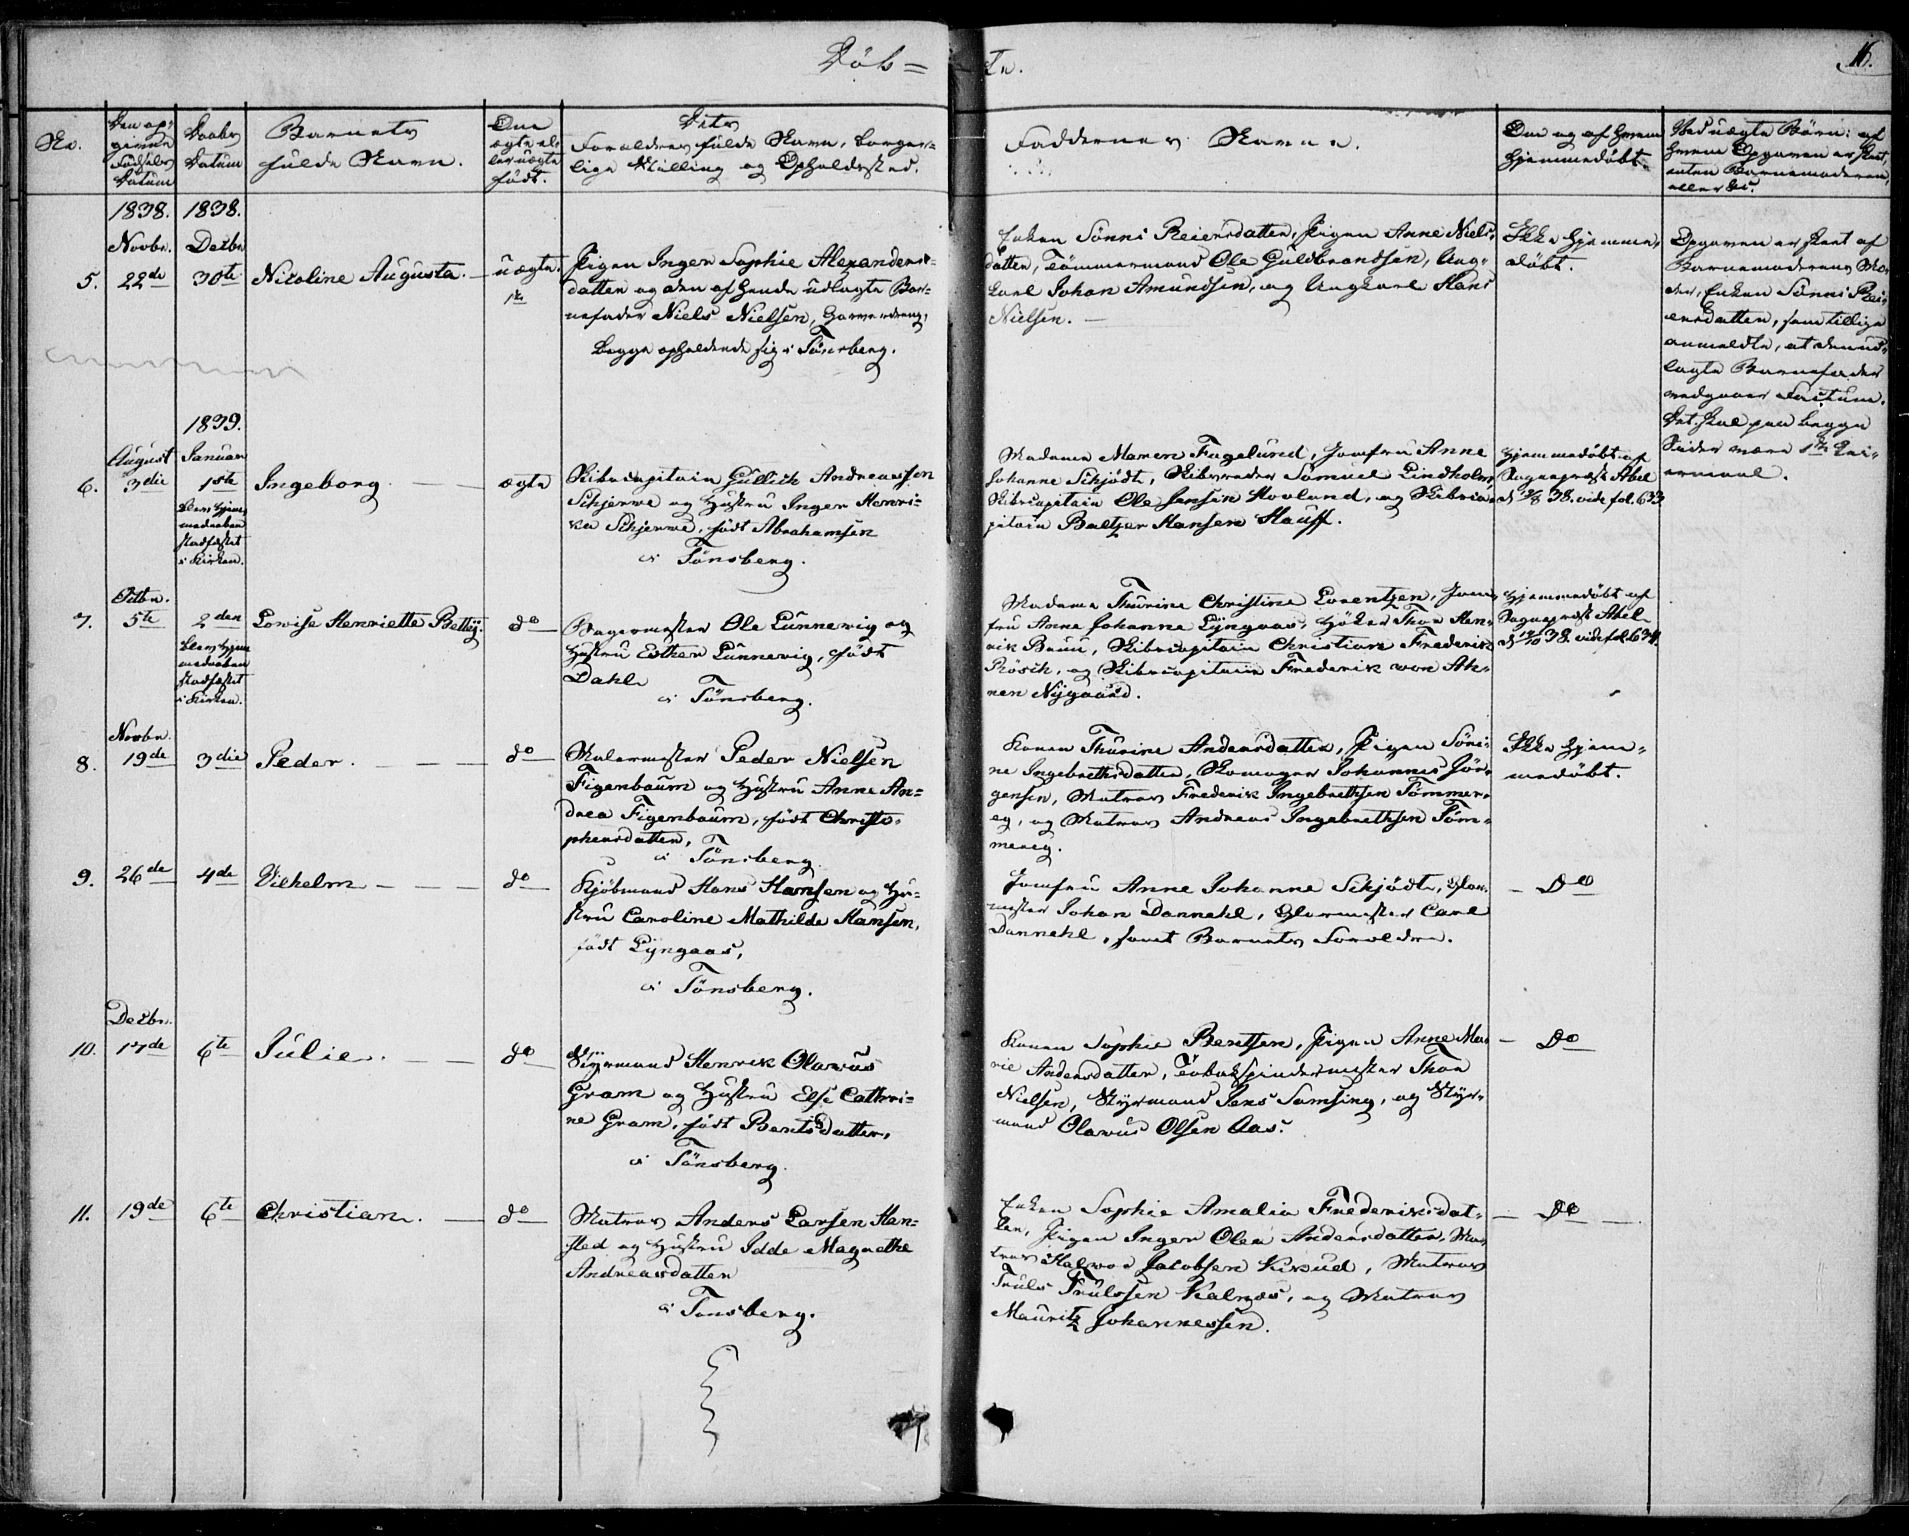 Döb=
te.
16.
No.
Den op-
givne
Födsels
Datum
Daabs
Datum
Barnets
fulde Navn.
Om
ægte el-
ler uægte
födt.
Dets
Forældres fulde Navn, borger-
lige Stilling og Opholdssted.
Faddernes Navne.
Om og af hvem
hjemmedöbt.
Ved uægte Börn: af
hvem Opgaven er skeet,
enten Barnemoderen,
eller
1838. 1838.
Novbr. Decbr.
5. 22de 30te Nicoline Augusta. uægte.
Pigen Inger Sophie Alexanders-
datter og den af hende udlagte Bar-
nefader Niels Nielsen, Garverdreng,
begge opholdende sig i Tönsberg.
Enken Sönni Reiersdatter, Pigen Anne Niels-
datter, Tömmermand Ole Guldbrandsen, Ung-
karl Johan Amundsen, og Ungkarl Hans
Nielsen.
Ikke hjemme-
döbt.
Opgaven er skeet af
Barnemoderens Mo-
der, Enken Sönni Rei-
ersdatter, som tillige
anmeldte, at den ud-
lagte Barnefader
vedgaaer Factum.
Det skal paa begge
Sider være 1ste Lei-
ermaal.
1839.
August Januar
6. 3die 1ste Ingeborg. ægte
Blev hjem-
medaaben
stadfæstet
i Kirken.
Skibscapitain Gullich Andreassen
Schjerve og Hustru Inger Henri-
ka Schjerve, födt Abrahamsen
i Tönsberg.
Madame Maren Fagelund, Jomfru Anne
Johanne Schjödt, Skibsreder Samuel Lindholm,
Skibscapitain Ole Jensen Hovland, og Skibsca-
pitain Baltzer Hansen Hauff.
Hjemmedöbt af
Sogneprest Abel
d. 38. vide fol. 633.
Octbr.
7. 5te 2den Lovise Henriette Betty. do
Blev hjem-
medaaben
stadfæstet
i Kirken.
Bagermester Ole Lunnevig og
Hustru Esther Lunnevig, födt
Dahl
i Tönsberg.
Madame Thurine Christine Lorentzen, Jom-
fru Anne Johanne Lyngaas, Höker Thor Hen-
rik Bruu, Skibscapitain Christian Frederik
Rösch, og Skibscapitain Frederik von Ah-
nen Nygaard.
Hjemmedöbt af
Sogneprest Abel
d. 38. vide fol. 634.
Novbr.
8. 19de 3die Peder. do
Malermester Peder Nielsen
Figenbaum og Hustru Anne An-
drea Figenbaum, födt Christo-
phersdatter,
i Tönsberg.
Konen Thurine Andersdatter, Pigen Söri-
ne Ingebrethsdatter, Skomager Johannes Jör-
gensen, Matros Frederik Ingebrethsen Tömmer-
eg, og Matros Andreas Ingebrethsen Töm-
mereg.
Ikke hjem-
medöbt.
9. 26de 4de Vilhelm do
Kjöbmand Hans Hansen og Hu-
stru Caroline Mathilde Hansen,
födt Lyngaas,
i Tönsberg.
Jomfru Anne Johanne Schjödt, Glar-
mester Johan Dannehl, Glarmester Carl
Dannehl, samt Barnets Forældre.
Do
Decbr.
10. 17de 6te Julie. do
Styrmand Henrik Olavus
Gram og Hustru Else Cathri-
ne Gram, födt Bentsdatter,
i Tönsberg.
Konen Sophie Bentsen, Pigen Anne Ma-
rie Andersdatter, Tobakspindermester Thor
Nielsen, Styrmand Jens Samsing, og Styr-
mand Olavus Olsen Aas.
Do
11. 19de 6te Christian. do
Matros Anders Larsen Han-
sted og Hustru Idde Magrethe
Andreasdatter
i Tönsberg.
Enken Sophie Amalia Frederiksdat-
ter, Pigen Inger Olea Andersdatter, Ma-
tros Halvor Jacobsen Kirud, Matros
Truls Trulssen Kalnæs, og Matros
Mauritz Johannessen.
Do